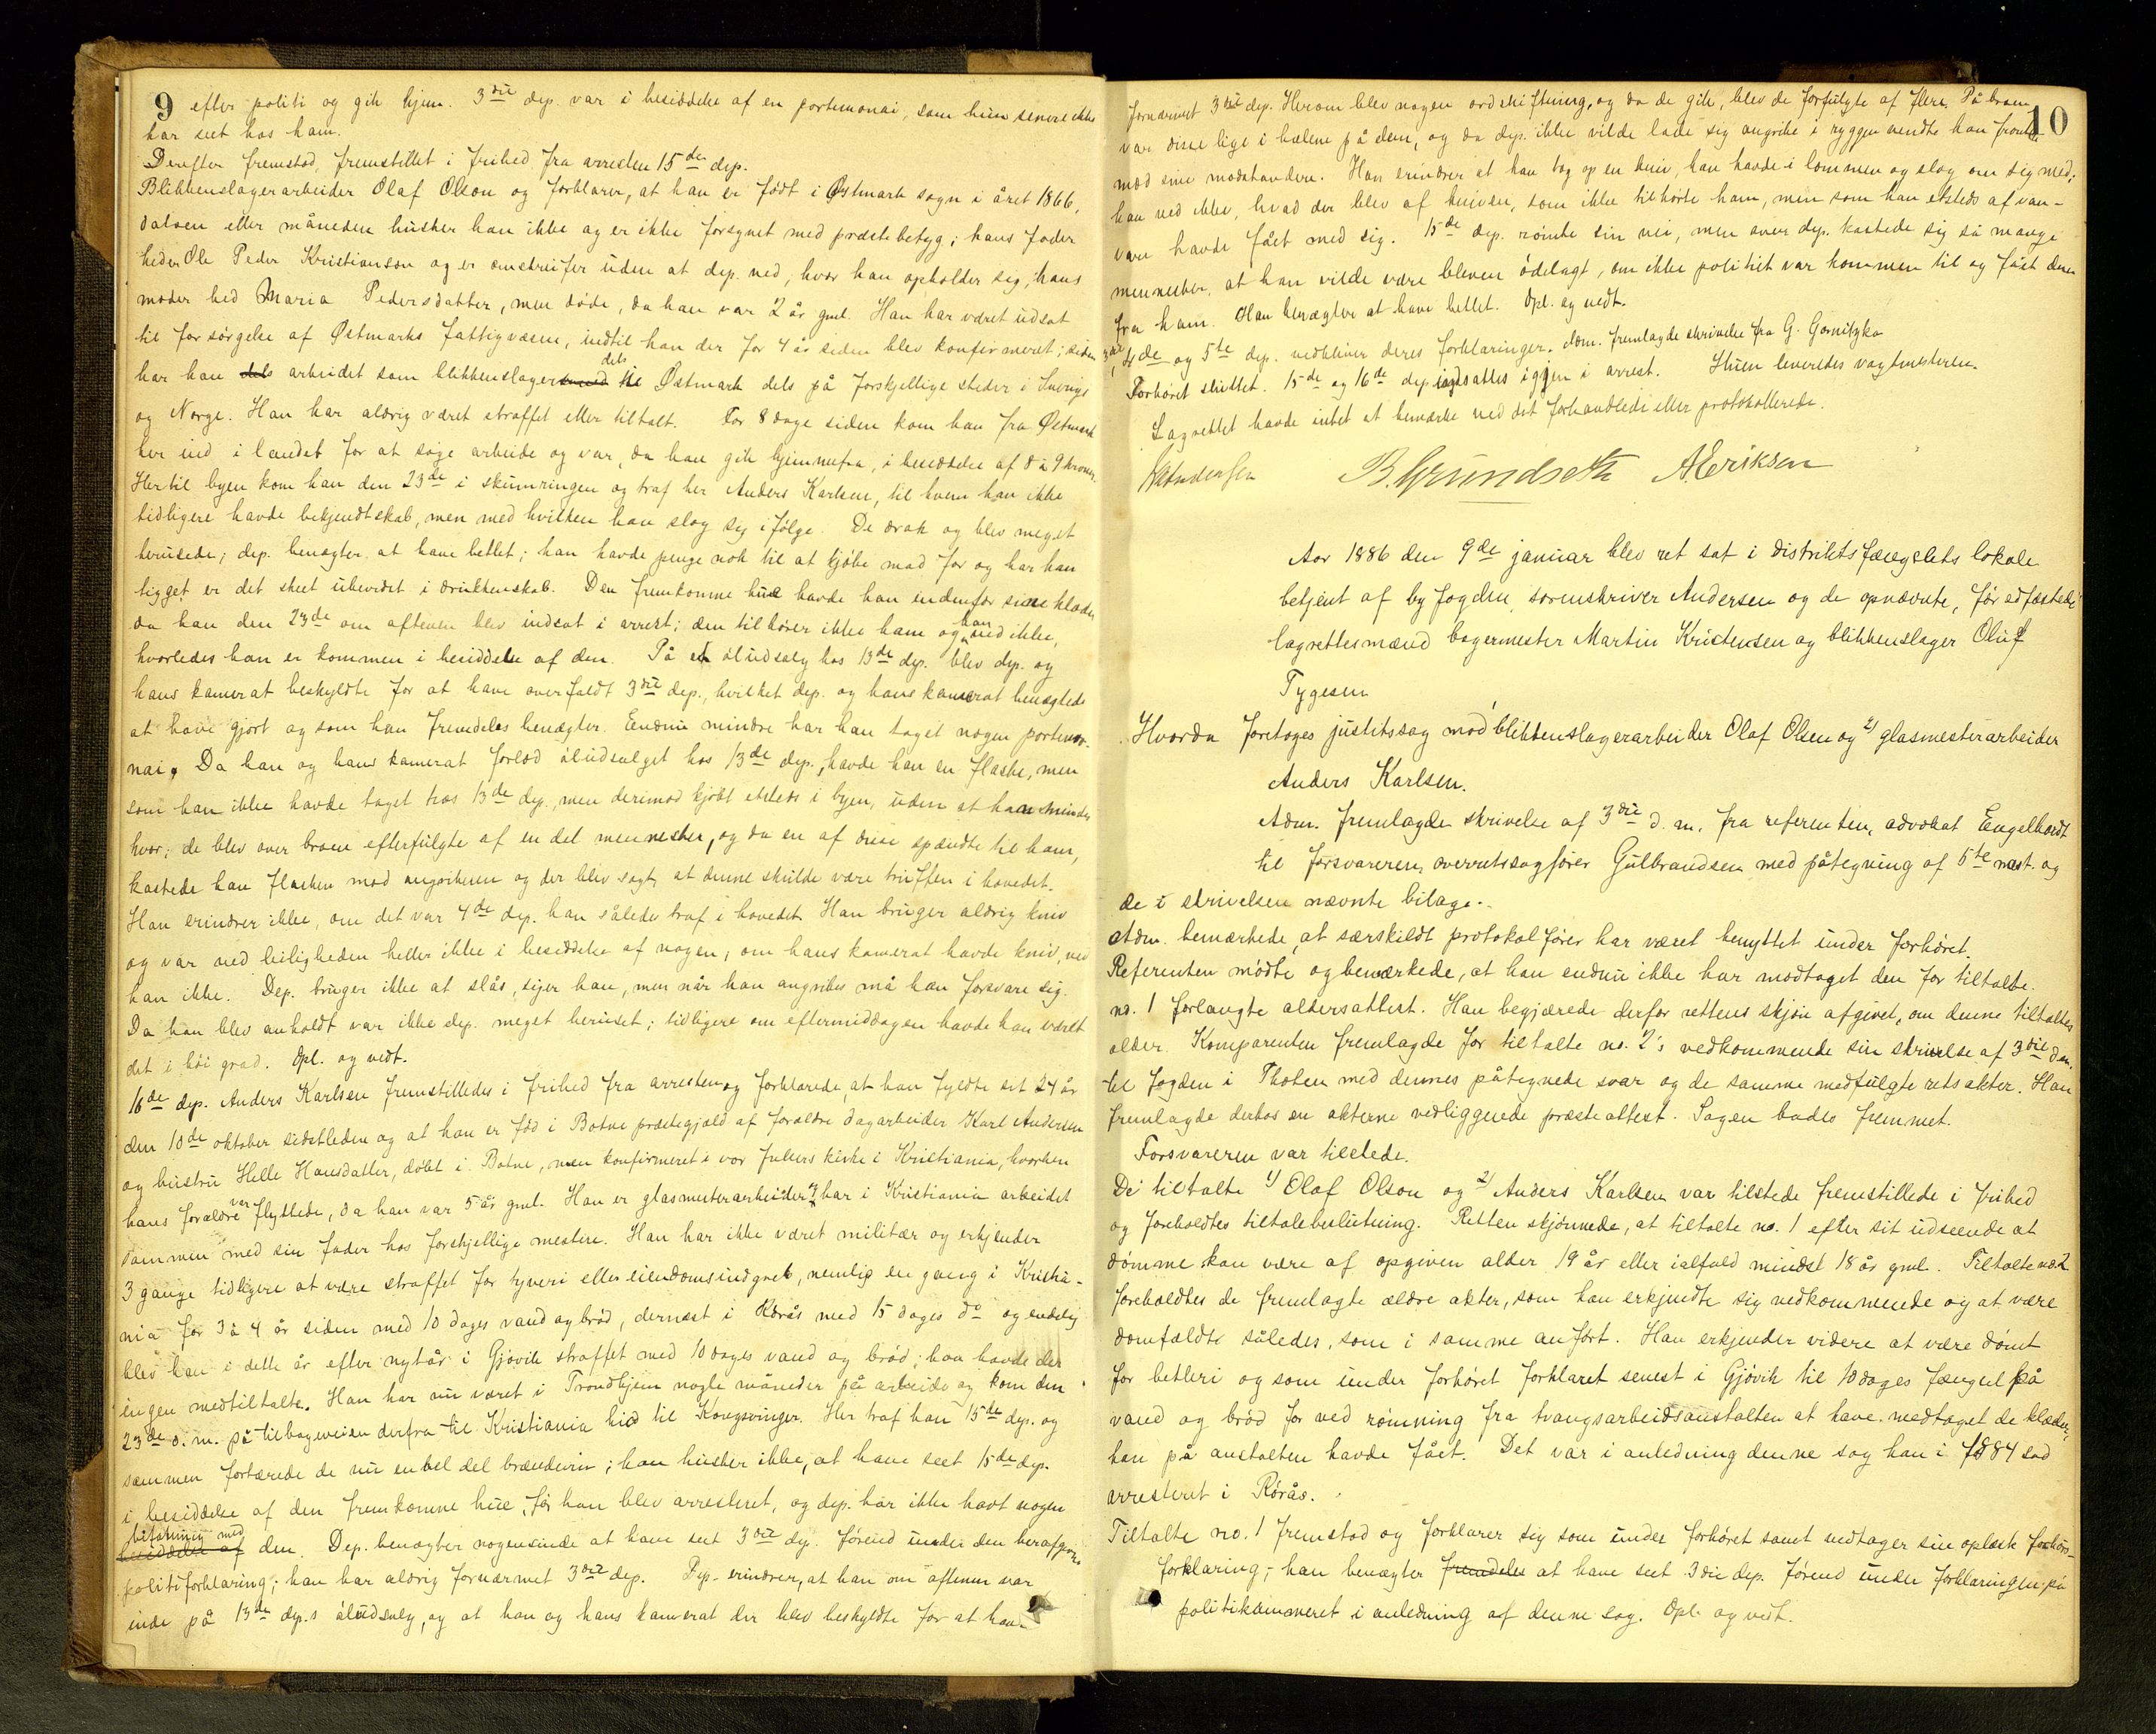 9 efter politi og gik hjem. 3die dep. var i besiddelse af en portemonai, som hun senere ikke
har seet hos ham.
Derefter fremstod, fremstillet i frihed fra arresten 15de dep.
Blikkenslagerarbeider Olaf Olson og forklarer, at han er født i Østmark sogn i året 1866,
datoen eller måneden husker han ikke og er ikke forsynet med prestebetyg; hans fader
heder Ole Peder Kristianson og er omstreifer uden at dep. ved, hvor han opholder sig, hans
moder hed Maria Pedersdatter, men døde, da han var 2 år gml. Han har været udsat
til forsørgelse af Østmarks fattigvæsen, indtil han der for 4 år siden blev konfirmeret; siden
har han dels arbeidet som blikkenslager i Østmark dels på forskjellige steder i Sverige
og Norge. Han har aldrig været straffet eller tiltalt. For 8 dage siden kom han fra Østmark
her ind i landet for at søge arbeide og var, da han gik hjemmefra, i besiddelse af 8 à 9 kroner.
Her til byen kom han den 23de i skumringen og traf her Anders Karlsen, til hvem han ikke
tidligere havde bekjendtskab, men med hvilken han slog sig i følge. De drak og blev meget
berusede; dep. benægter at have betlet; han havde penge nok til at kjøbe mad for og har han
tigget er det skeet ubevidst i drukkenskab. Den fremkomne hue havde han indenfor sine klæder
da han den 23de om aftenen blev indsat i arrest; den tilhører ikke ham og han ved ikke,
hvorledes han er kommen i besiddelse af den. På et øludsalg hos 13de dep. blev dep. og
hans kamerat beskyldte for at have overfaldt 3die dep., hvilket dep. og hans kamerat benægtede
at have gjort og som han fremdeles benægter. Endnu mindre har han taget nogen portemo-
nai. Da han og hans kamerat forlod øludsalget hos 13de dep., havde han en flaske, men
som han ikke havde taget hos 13de dep., men derimod kjøbt etsteds i byen, uden at han mindes
hvor; de blev over broen efterfulgte af en del mennesker, og da en af disse spændte til ham,
kastede han flasken mod angriberen og der blev sagt, at denne skulde være truffen i hovedet.
Han erindrer ikke, om det var 4de dep. han således traf i hovedet. Han bruger aldrig kniv
og var ved leiligheden heller ikke i besiddelse af nogen; om hans kamerat havde kniv, ved
han ikke. Dep. bruger ikke at slås, siger han, men når han angribes må han forsvare sig.
Da han blev anholdt var ikke dep. meget beruset; tidligere om eftermiddagen havde han været
det i høi grad. Opl. og vedt.
16de dep. Anders Karlsen fremstilledes i frihed fra arresten og forklarede, at han fyldte sit 24 år
den 10de oktober sidstleden og at han er fød i Botne prestegjæld af forældre dagarbeider Karl Andersen
og hustru Helle Hansdatter, døbt i Botne, men konfirmeret i vor frelsers kirke i Kristiania, hvorhen
hans forældre var flyttede, da han var 5 år gml. Han er glasmesterarbeider og har i Kristiania arbeidet
sammen med sin fader hos forskjellige mestere. Han har ikke været militær og erkjender
3 gange tidligere at være straffet for tyveri eller eiendomsindgreb, nemlig en gang i Kristia-
nia for 3 à 4 år siden med 10 dages vand og brød, dernæst i Rørås med 15 dages do og endelig
blev han i dette år efter nytår i Gjøvik straffet med 10 dages vand og brød; han havde der
ingen medtiltalte. Han har nu været i Trondhjem nogle måneder på arbeide og kom den
23de d.m. på tilbageveien derfra til Kristiania hid til Kongsvinger. Her traf han 15de dep. og
sammen fortærede de nu en hel del brændevin; han husker ikke, at have seet 15de dep.
i besiddelse af den fremkomne hue, før han blev arresteret, og dep. har ikke havt nogen
befatning med besiddelse af den. Dep. benægter nogensinde at have seet 3die dep. førend under den herafgivne
politiforklaring; han har aldrig fornærmet 3die dep. Dep. erindrer, at han om aftenen var
inde på 13de dep.s øludsalg, og at han og hans kamerat der blev beskyldte for at have
10
fornærmet 3die dep. Herom blev nogen ordskiftning, og da de gik, blev de forfulgte af flere. På broen
var disse lige i hælene på dem, og da dep. ikke vilde lade sig angribe i ryggen vendte han front
mod sine modstandere. Han erindrer at han tog op en kniv, han havde i lommen og slog om sig med;
han ved ikke, hvad der blev af kniven, som ikke tilhørte ham, men som han etsteds af van-
vare havde fået med sig. 15de dep. rømte sin vei, men over dep. kastede sig så mange
mennesker, at han vilde være bleven ødelagt, om ikke politiet var kommen til og fået dem
fra ham. Han benægter at have betlet. Opl. og vedt.
3die, 4de og 5te dep. vedbliver deres forklaringer. Adm. fremlagde skrivelse fra G. Gornitzka
Forhøret sluttet. 15de og 16de dep. indsattes igjen i arrest. Huen leveredes vagtmesteren.
Lagrettet havde intet at bemærke ved det forhandlede eller protokollerede.
Andersen B. Grundseth A Eriksen
Aar 1886 den 9de januar blev ret sat i distriktsfængslets lokale
betjent af byfogden, sorenskriver Andersen og de opnævnte, før edfæstede
lagrettesmænd bagermester Martin Kristensen og blikkenslager Oluf
Tygesen
Hvorda foretoges justitssag mod blikkenslagerarbeider Olaf Olsen og 2) glasmesterarbeider
Anders Karlsen.
Adm. fremlagde skrivelse af 3die d.m. fra referenten, advokat Engelhardt
til forsvareren, overretssagfører Gulbrandsen med påtegning af 5te næst. og
de i skrivelsen nævnte bilage.
Adm. bemærkede, at særskildt protokolfører har været benyttet under forhøret.
Referenten mødte og bemærkede, at han endnu ikke har modtaget den for tiltalte
no. 1 forlangte aldersattest. Han begjærede derfor rettens skjøn afgivet, om denne tiltaltes
alder. Komparenten fremlagde for tiltalte no. 2's vedkommende sin skrivelse af 3die dm.
til fogden i Thoten med dennes påtegnede svar og de samme medfulgte retsakter. Han
fremlagde derhos en akterne vedliggende præsteattest. Sagen bades fremmet.
Forsvareren var tilstede.
De tiltalte 1) Olaf Olson og 2) Anders Karlsen var tilstede fremstillede i frihed
og foreholdtes tiltalebeslutning. Retten skjønnede, at tiltalte no. 1 efter sit udseende at
dømme kan være af opgiven alder 19 år eller ialfald mindst 18 år gml. Tiltalte no. 2
foreholdtes de fremlagte ældre akter, som han erkjendte sig vedkommende og at være
domfældt således, som i samme anført. Han erkjender videre at være dømt
for betleri og som under forhøret forklaret senest i Gjøvik til 10 dages fængsel på
vand og brød for ved rømning fra tvangsarbeidsanstalten at have medtaget de klæder,
han på anstalten havde fået. Det var i anledning denne sag han i 1884 sad
arresteret i Rørås.
Tiltalte no. 1 fremstod og forklarer sig som under forhøret samt vedtager sin oplæste forhørs-
forklaring; han benægter fremdeles at have seet 3die dep. førend under forklaringen på
politikammeret i anledning af denne sag. Opl. og vedt.